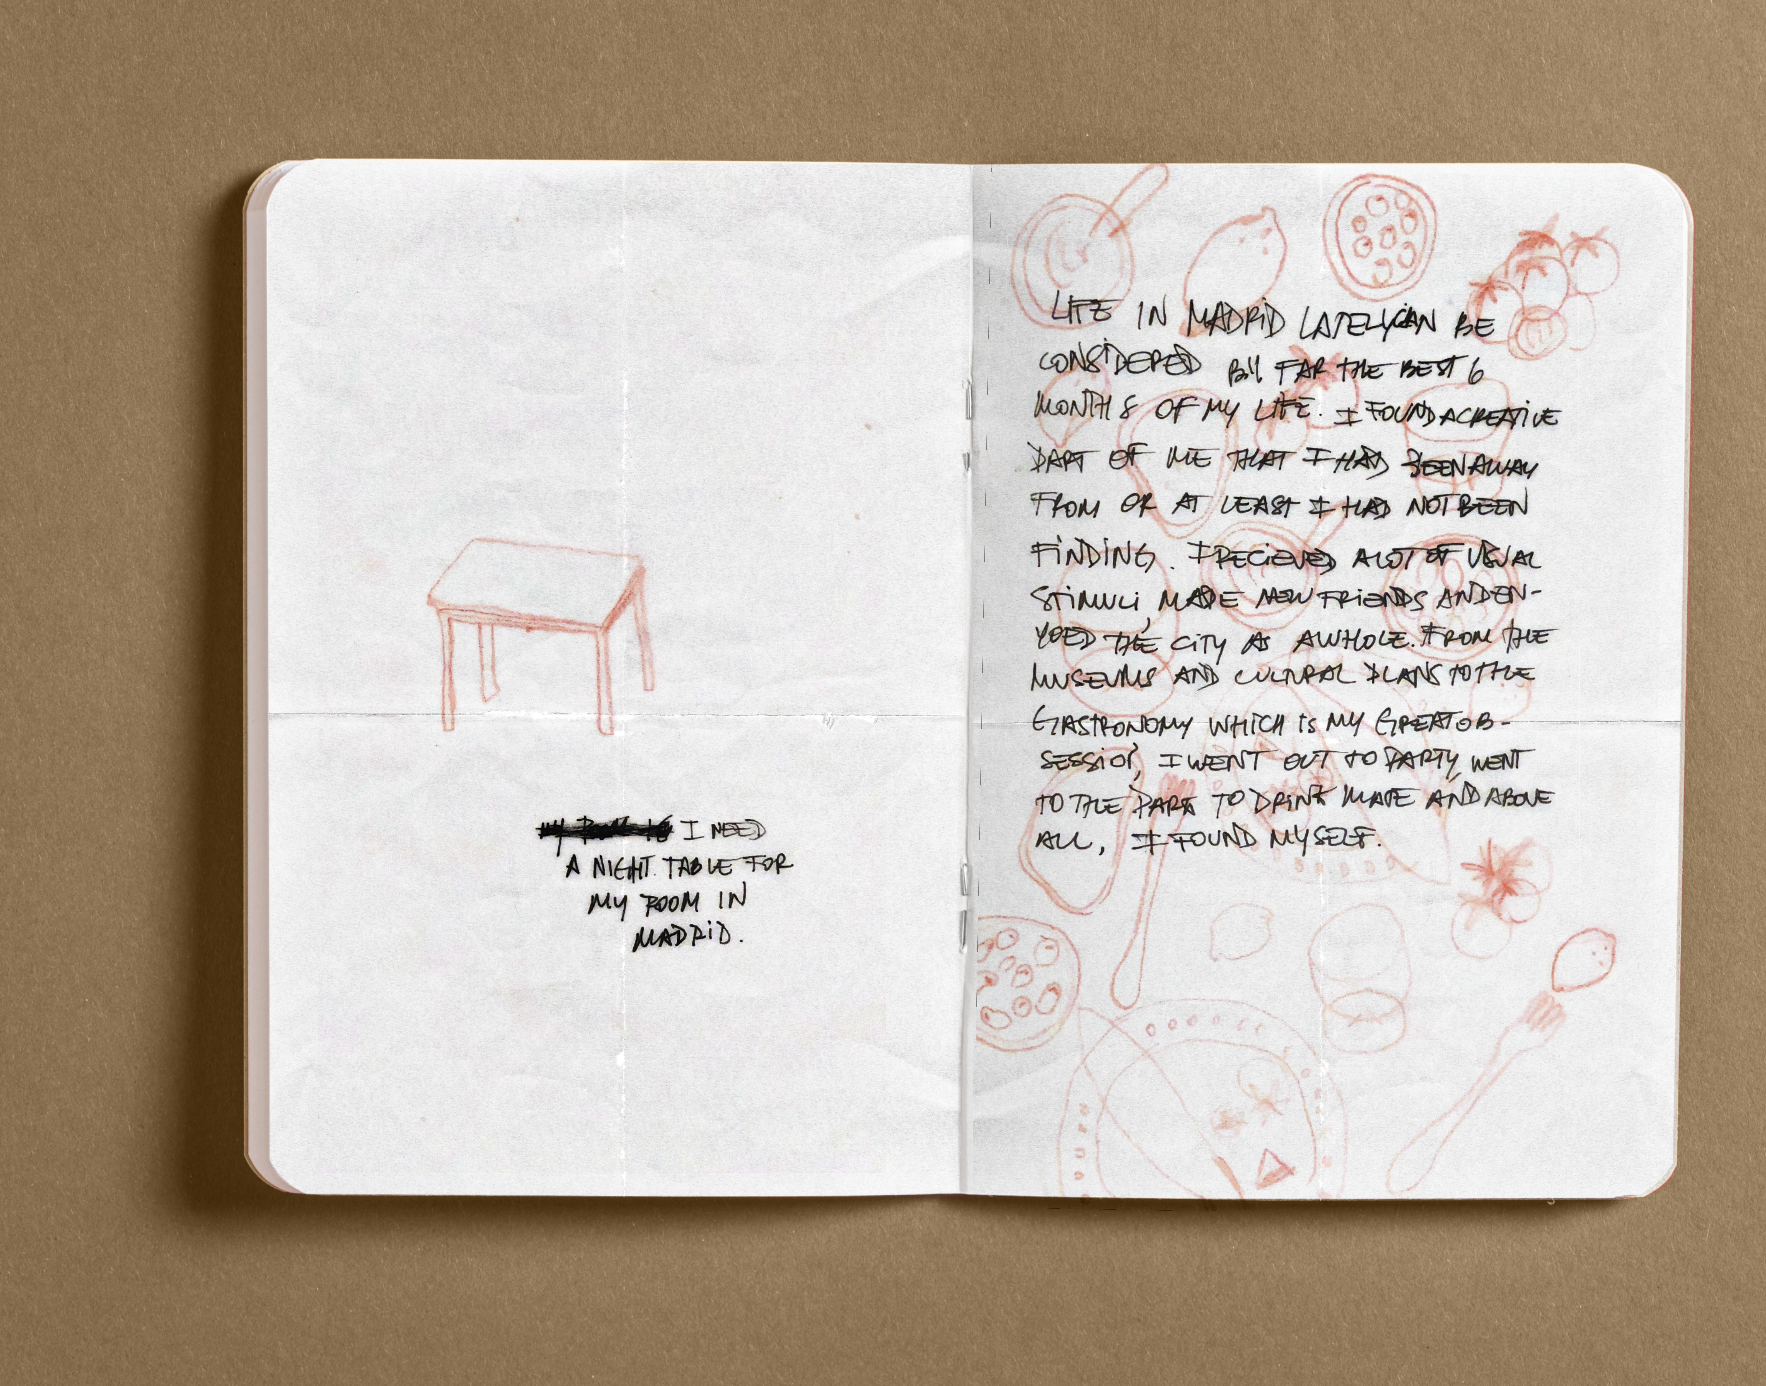 I NEED
A NIGHT TABLE FOR
MY ROOM IN
MADRID.
LIFE IN MADRID LATELY CAN BE
CONSIDERED BY FAR THE BEST 6
MONTHS OF MY LIFE. I FOUND A CREATIVE
PART OF ME THAT I HAD BEEN AWAY
FROM OR AT LEAST I HAD NOT BEEN
FINDING. I RECIEVED A LOT OF VISUAL
STIMULI, MADE NEW FRIENDS AND EN-
YOED THE CITY AS A WHOLE. FROM THE
MUSEUMS AND CULTURAL PLANS TO THE
GASTRONOMY WHICH IS MY GREAT OB-
SESSION, I WENT OUT TO PARTY, WENT
TO THE PARK TO DRINK MATE AND ABOVE
ALL, I FOUND MYSELF.